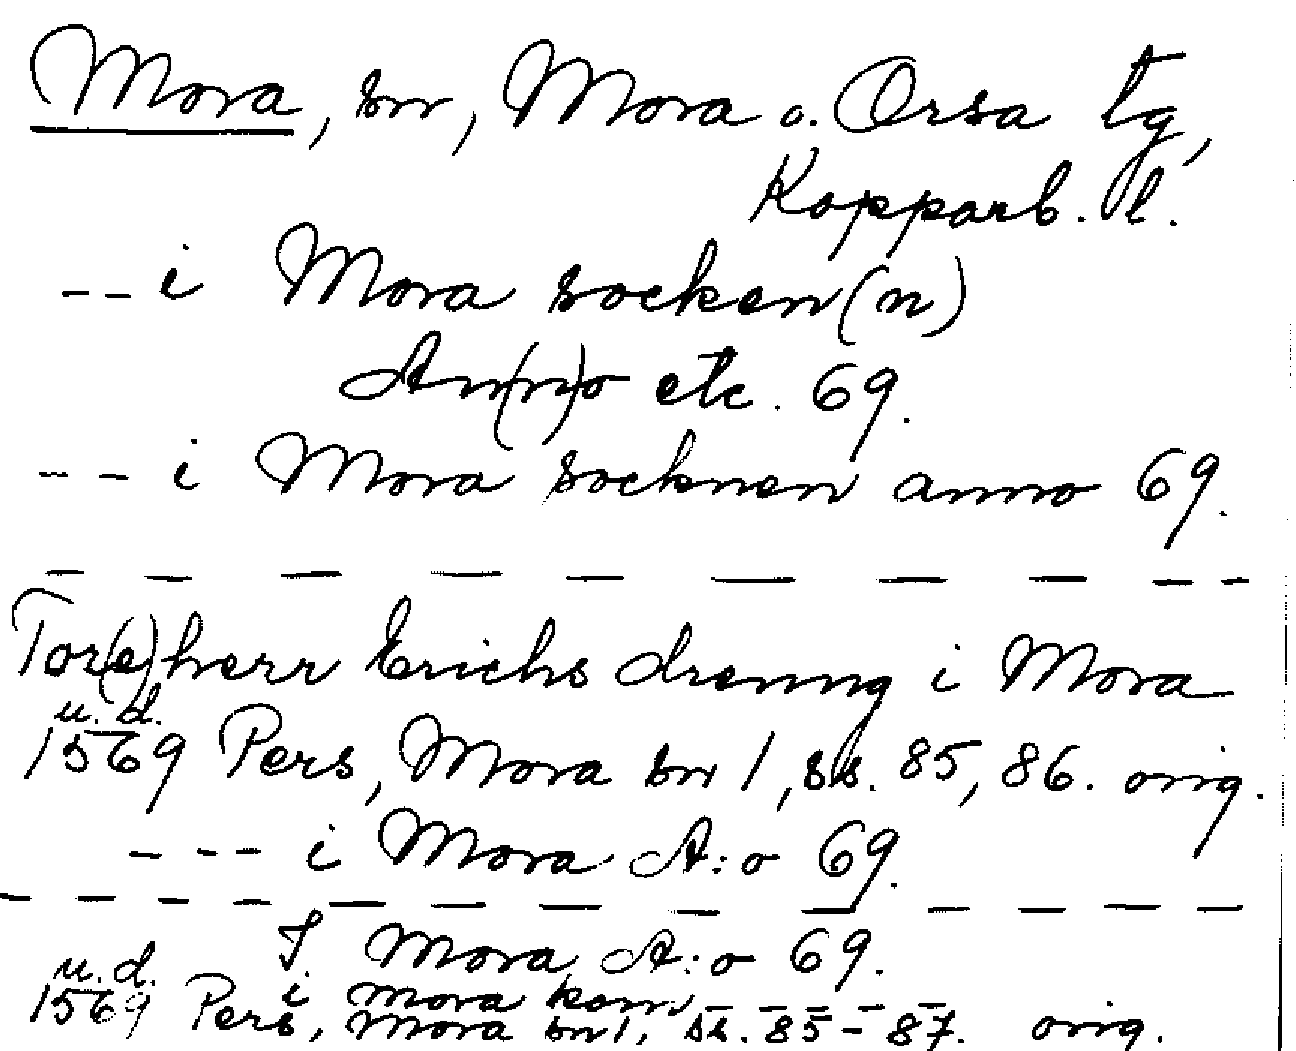 Mora, sn, Mora o. Orsa tg,
Kopparb. l.
-- i Mora socken(n)
An(n)o etc. 69.
-- i Mora socknen anno 69.
Tor(e) herr Erichs drenng i Mora
u. d.
1569 Pers, Mora sn 1, ss. 85, 86. orig.
--- i Mora A:o 69.
I Mora A:o 69.
u. d. i Mora kom
1569 Pers, Mora sn 1, ss. 85-87. orig.